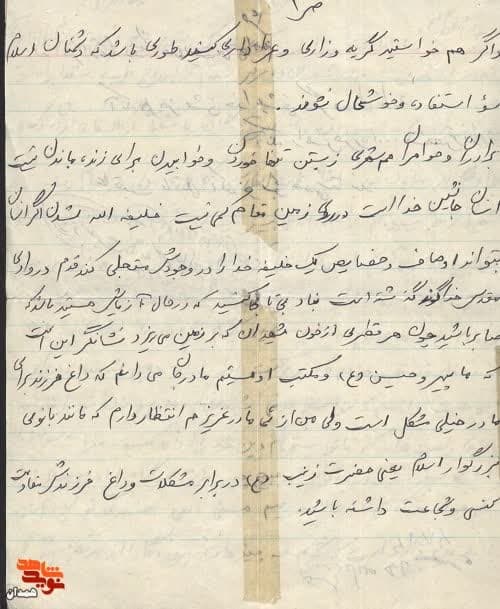 ص ۱
واگر هم خواستید گریه وزاری و عزاداری کنید طوری باشد که دشمنان اسلام
سؤ استفاده وخوشحال نشوند .
برادران وخواهران هم سنگری زیستن تنها خوردن وخوابیدن برای زنده ماندن نیست
انسان جانشین خدا است در روی زمین مقام کمی نیست خلیفه الله شدن اگر انسان
بتواند اوصاف و خصایص یک خلیفه خدا را در وجودش متجلی کند قدم در وادی
مقدس خدا گونه گذاشته است نباد بی تابی کنید که در حال آزمایش هستید بلکه
صابر باشید چون هر قطره ای از خون شهدا که بر زمین می ریزد نشانگر این است
که ما پیرو حسین (ع) و مکتب او هستیم مادرجان می دانم که داغ فرزند برای
مادر خیلی مشکل است ولی من از شما مادر عزیزم انتظار دارم که مانند بانوی
بزرگوار اسلام یعنی حضرت زینب (س) در برابر مشکلات و داغ فرزندش مقاومت
کنی وشجاعت داشته باشید.
نوید شاهد
همدان